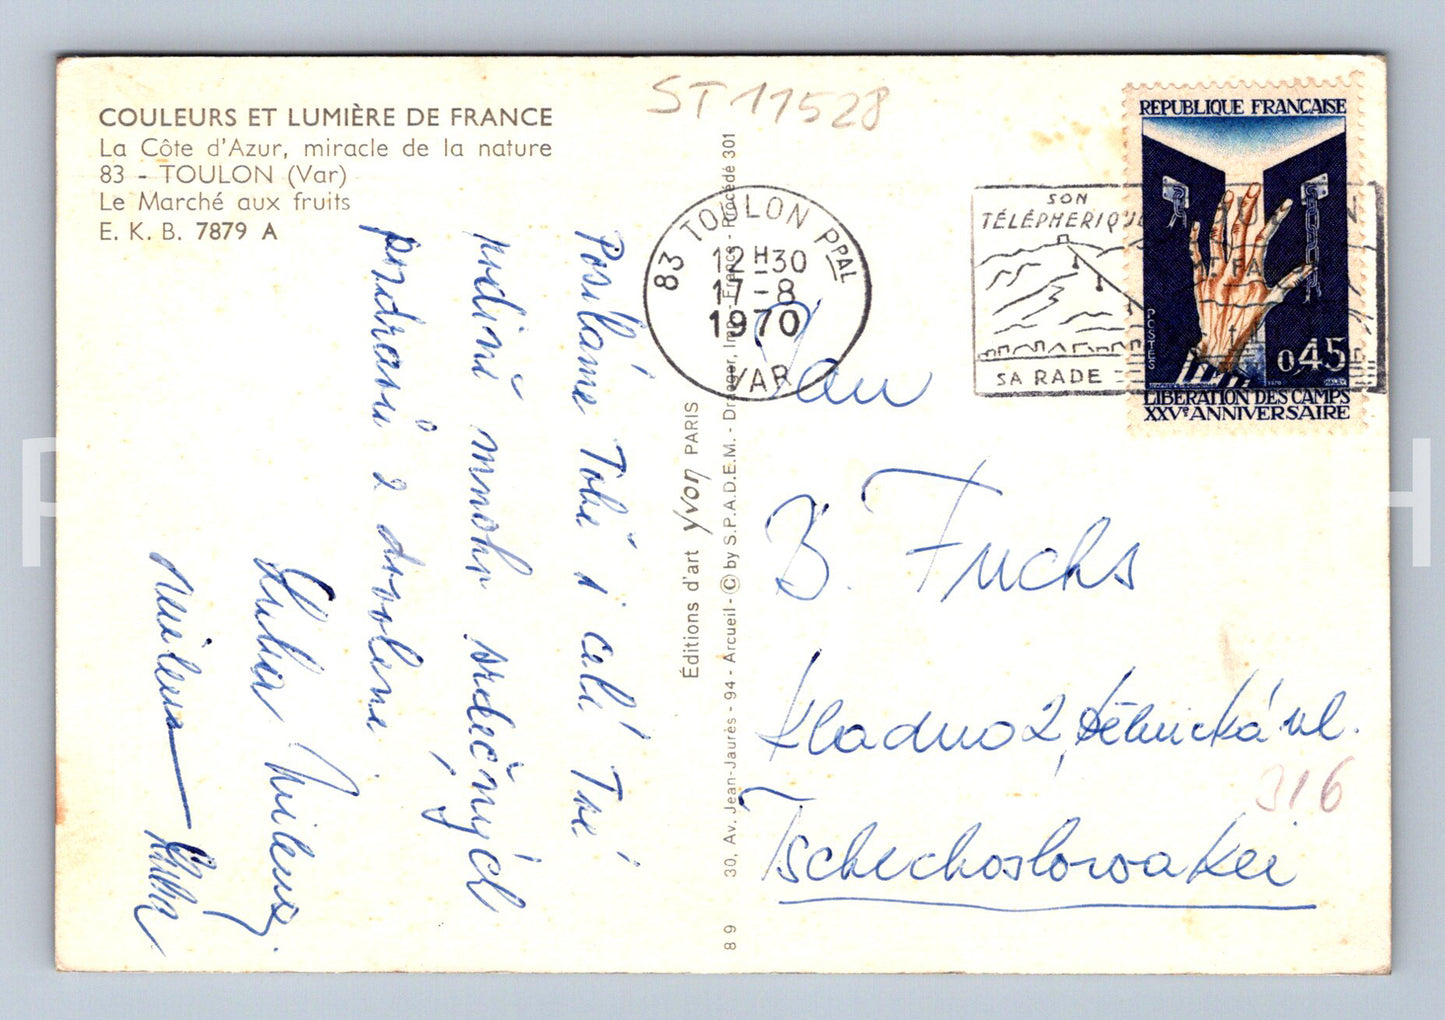 COULEURS ET LUMIÈRE DE FRANCE
La Côte d'Azur, miracle de la nature
83 - TOULON (Var)
Le Marché aux fruits
E. K. B. 7879 A
ST 11528
Posíláme Tobě i celé Tvé
rodině mnoho srdečných
pozdravů z dovolené.
Milena
83 TOULON PPAL
12H30
17-8
1970
VAR
SON
TÉLÉPHERIQUE
SA RADE
REPUBLIQUE FRANÇAISE
POSTES
0,45
LIBERATION DES CAMPS
XXVe ANNIVERSAIRE
Éditions d'art yvon PARIS
30, Av. Jean-Jaurès - 94 - Arcueil - © by S.P.A.D.E.M. - Draeger, Imp. - France - Procédé 301
8 9
Pan
B. Fuchs
Kladno 2, Dělnická ul.
316
Tschechoslowakei